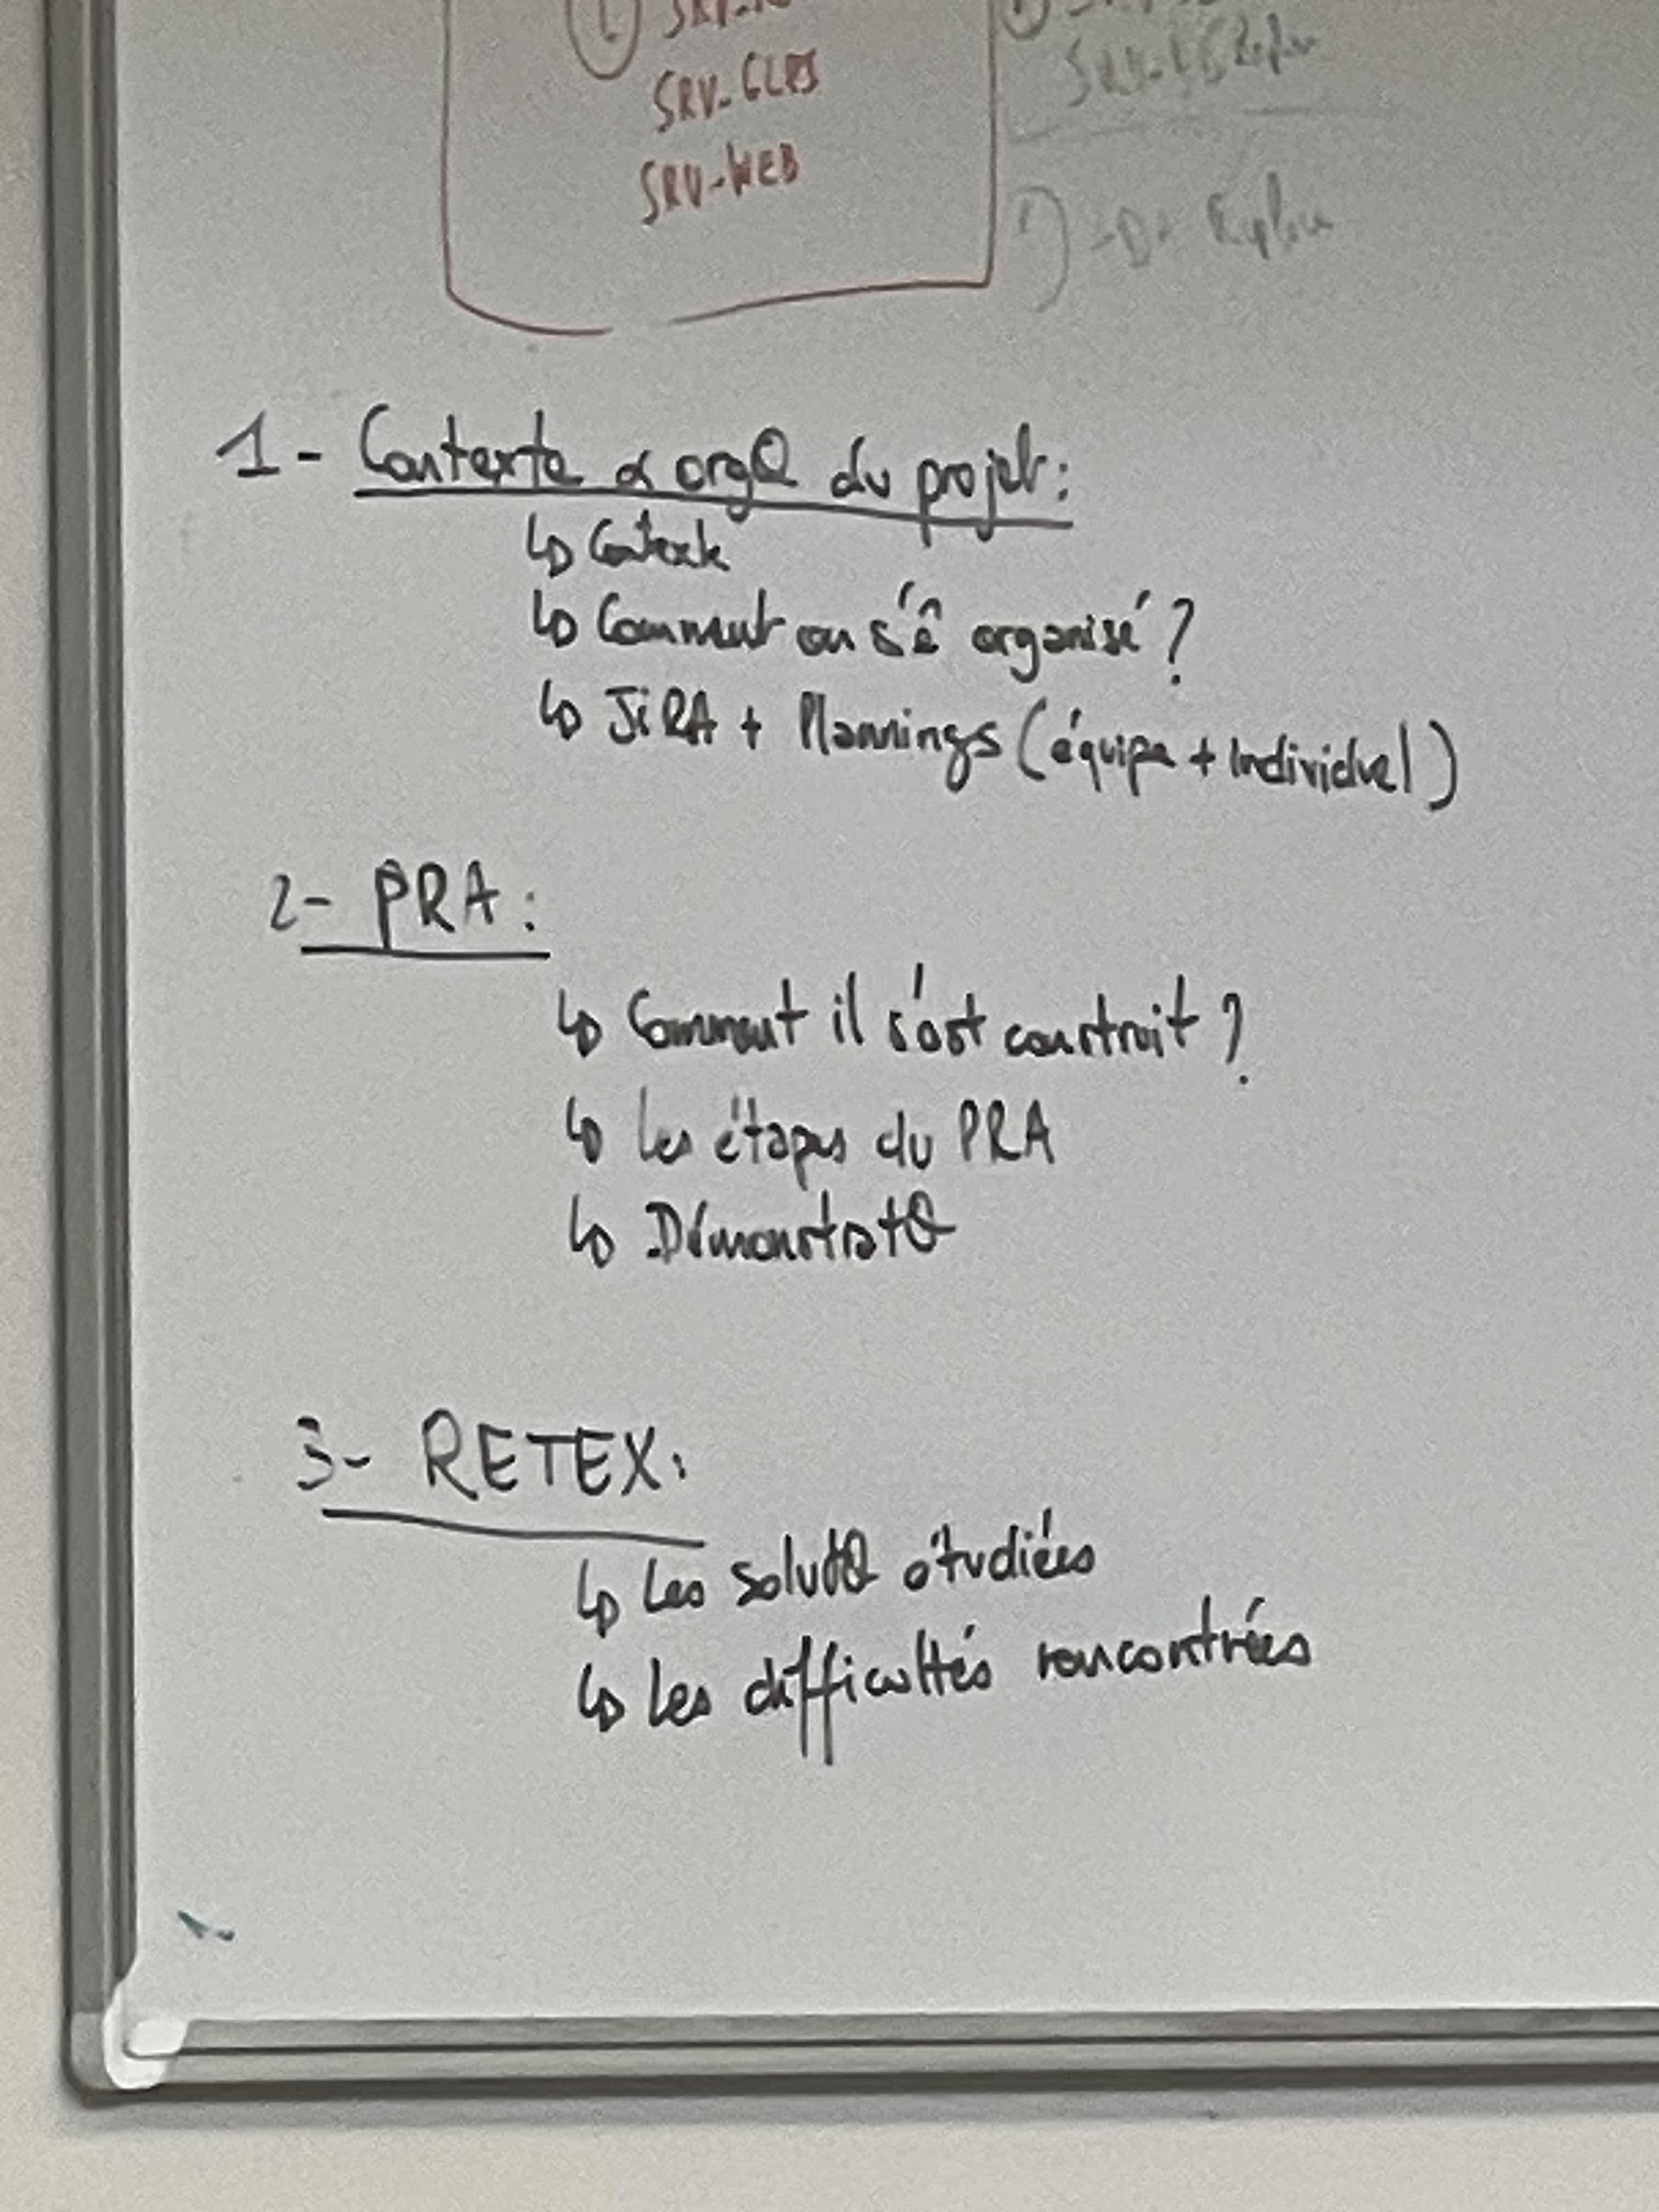 SRV-GLPI
SRV-WEB
1- Contexte & orgQ du projet:
↳ Contexte
↳ Comment on s'ê organisé ?
↳ JiRA + Plannings (équipe + Individuel)
2- PRA:
↳ Comment il s'est construit ?
↳ Les étapes du PRA
↳ DémonstratQ
3- RETEX:
↳ Les solutQ étudiées
↳ Les difficultés rencontrées